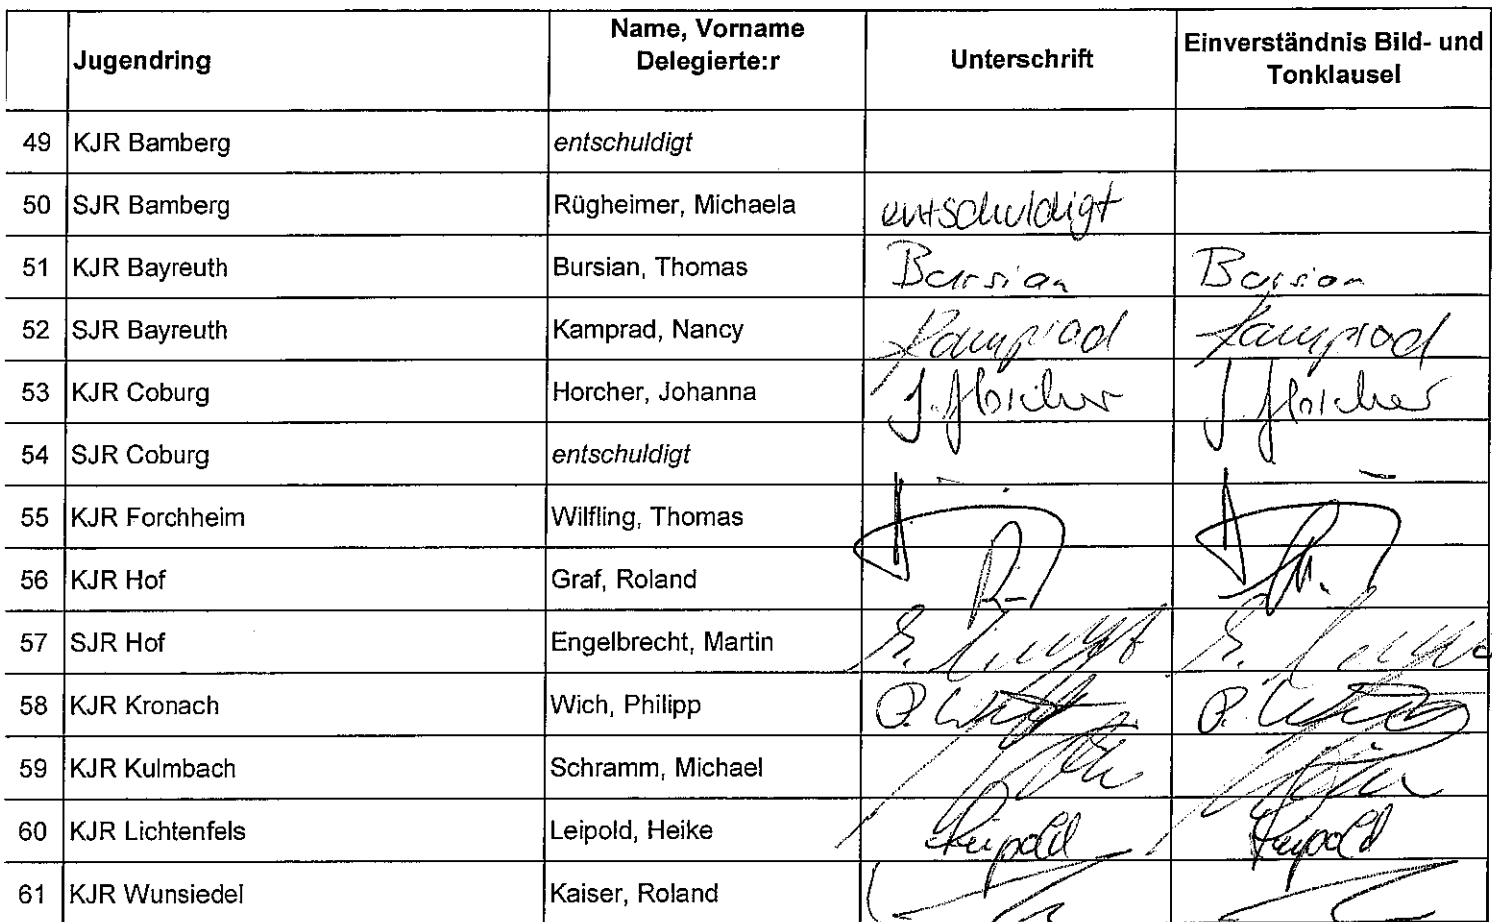 Jugendring Name, Vorname Delegierte:r Unterschrift Einverständnis Bild- und Tonklausel
49 KJR Bamberg entschuldigt
50 SJR Bamberg Rügheimer, Michaela entschuldigt
51 KJR Bayreuth Bursian, Thomas Bursian Bursian
52 SJR Bayreuth Kamprad, Nancy Kamprad Kamprad
53 KJR Coburg Horcher, Johanna J. Horcher J. Horcher
54 SJR Coburg entschuldigt
55 KJR Forchheim Wilfling, Thomas
56 KJR Hof Graf, Roland
57 SJR Hof Engelbrecht, Martin
58 KJR Kronach Wich, Philipp P. Wich P. Wich
59 KJR Kulmbach Schramm, Michael
60 KJR Lichtenfels Leipold, Heike Leipold Leipold
61 KJR Wunsiedel Kaiser, Roland